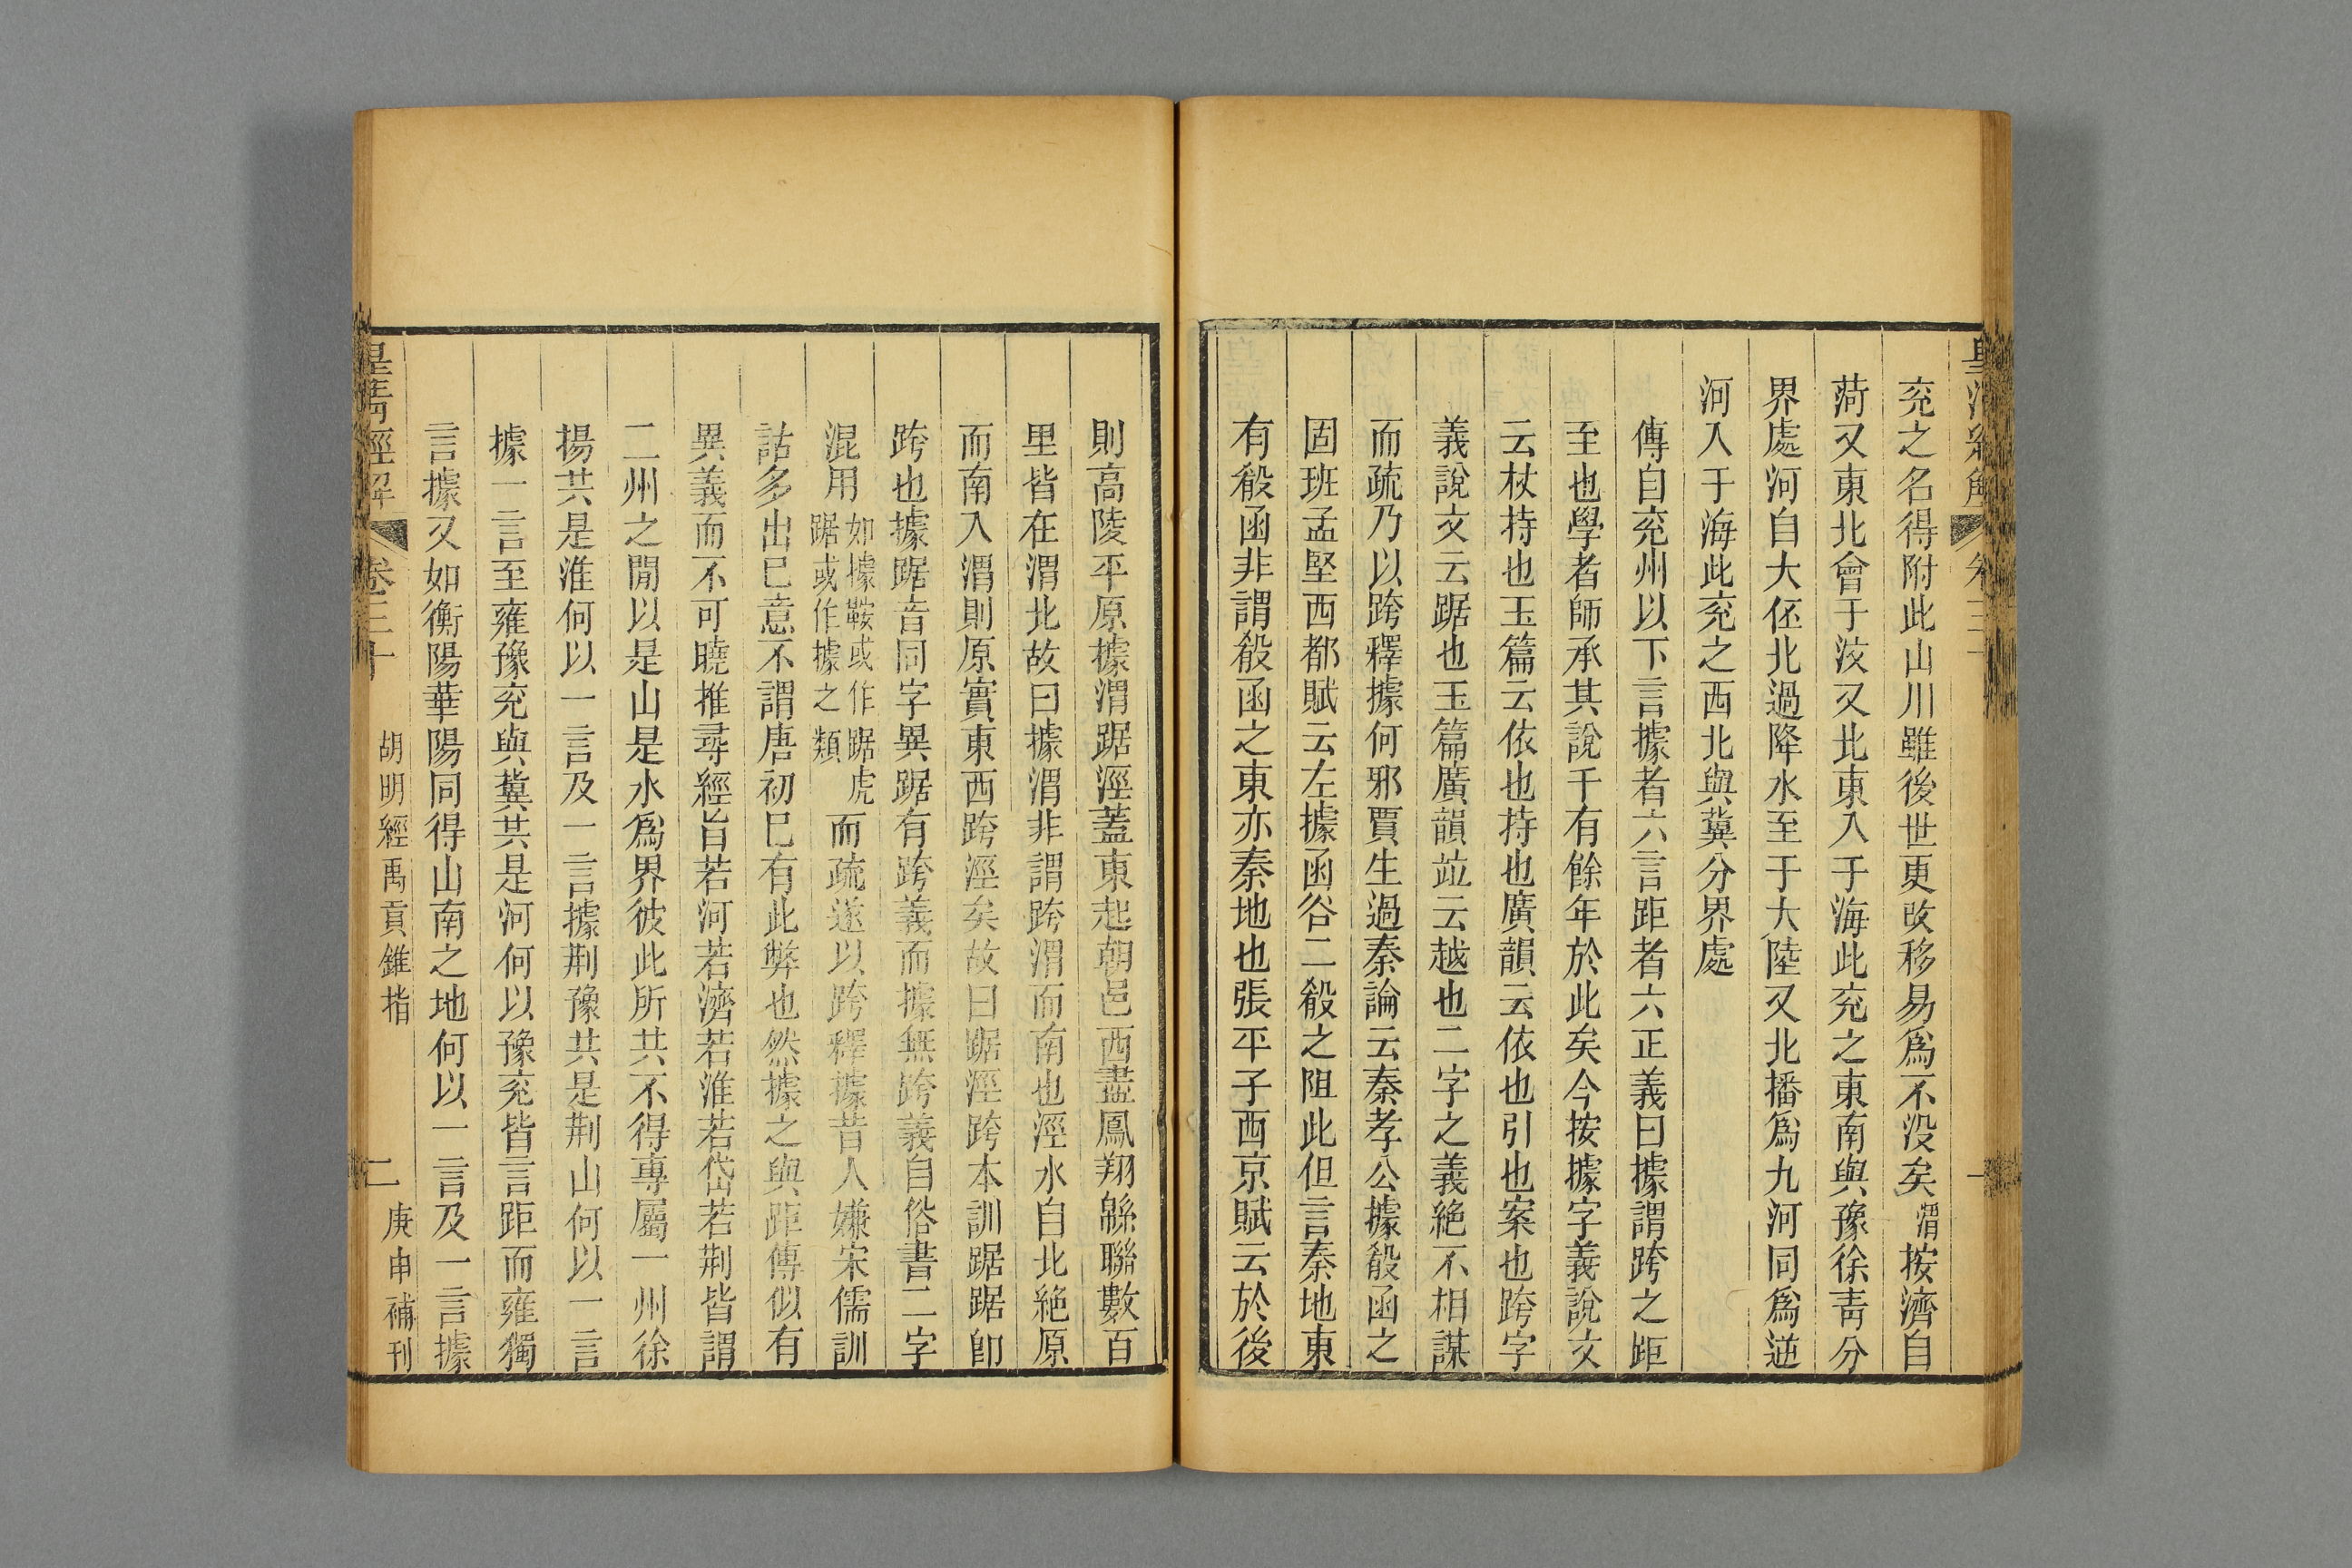 兖之名得附此山川雖後世更改移易爲不没矣渭按濟自
菏又東北會于汶又北東入于海此兖之東南與豫徐靑分
界處河自大伾北過降水至于大陸又北播爲九河同爲逆
河入于海此兖之西北與冀分界處
傳自兖州以下言據者六言距者六正義曰據謂跨之距
至也學者師承其說千有餘年於此矣今按據字義說文
云杖持也玉篇云依也持也廣韻云依也引也案也跨字
義說文云踞也玉篇廣韻竝云越也二字之義絶不相謀
而疏乃以跨釋據何邪賈生過秦論云秦孝公據殽函之
固班孟堅西都賦云左據函谷二殽之阻此但言秦地東
有殽函非謂殽函之東亦秦地也張平子西京賦云於後
則高陵平原據渭踞涇蓋東起朝邑西盡鳳翔緜聯數百
里皆在渭北故曰據渭非謂跨渭而南也涇水自北絶原
而南入渭則原實東西跨涇矣故曰踞涇跨本訓踞踞卽
跨也據踞音同字異踞有跨義而據無跨義自俗書二字
混用如據鞍或作踞虎踞或作據之類而疏遂以跨釋據昔人嫌宋儒訓
詁多出已意不謂唐初已有此弊也然據之與距傳似有
異義而不可曉推尋經旨若河若濟若淮若岱若荆皆謂
二州之閒以是山是水爲界彼此所共不得專屬一州徐
揚共是淮何以一言及一言據荆豫共是荆山何以一言
據一言至雍豫兖與冀共是河何以豫兖皆言距而雍獨
言據又如衡陽華陽同得山南之地何以一言及一言據
皇淸經解 卷三十 胡明經禹貢錐指 二 庚申補刊